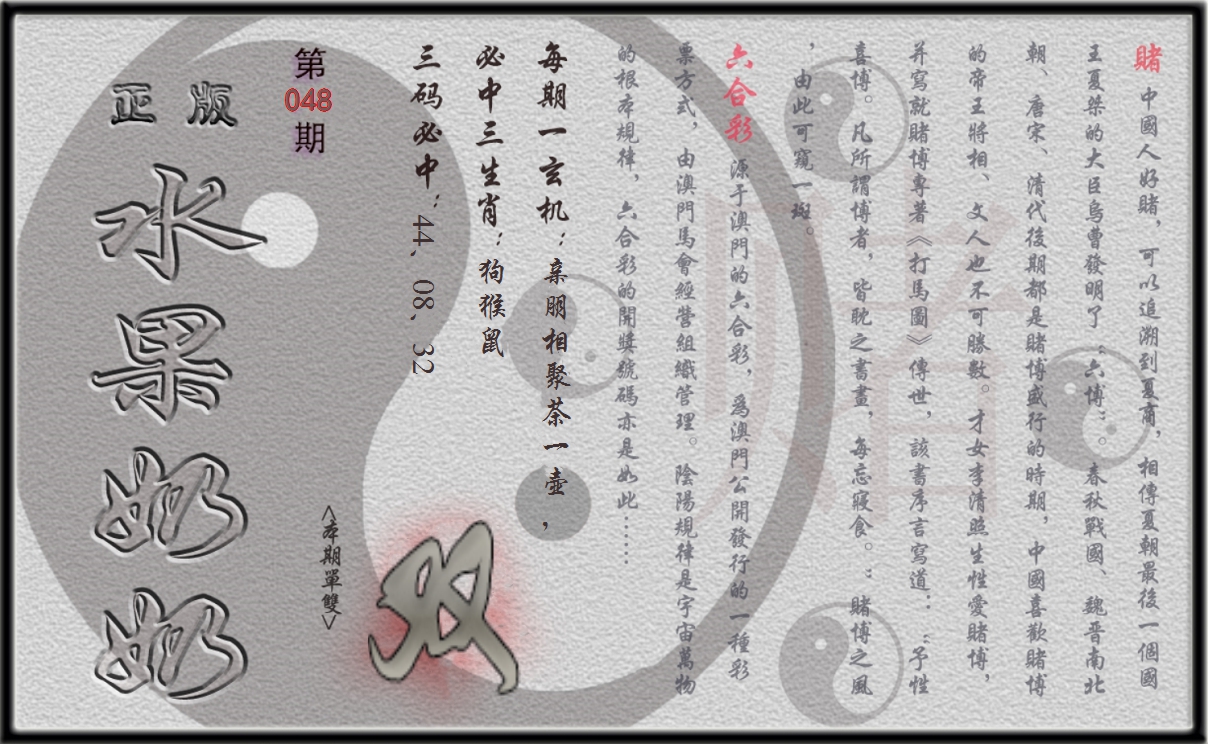 賭 中國人好賭，可以追溯到夏商，相傳夏朝最後一個國
王夏桀的大臣烏曹發明了“六博”。春秋戰國、魏晉南北
朝、唐宋、清代後期都是賭博盛行的時期，中國喜歡賭博
的帝王將相、文人也不可勝數。才女李清照生性愛賭博，
并寫就賭博專著《打馬圖》傳世，該書序言寫道：“予性
喜博。凡所謂博者，皆耽之書畫，每忘寢食。：賭博之風
，由此可窺一斑。
六合彩 源于澳門的六合彩，為澳門公開發行的一種彩
票方式，由澳門馬會經營組織管理。陰陽規律是宇宙萬物
的根本規律，六合彩的開獎號碼亦是如此……
每期一玄机：亲朋相聚茶一壶，
必中三生肖：狗猴鼠
三码必中：44、08、32
双
<本期單雙>
第
048
期
正版
水果奶奶
赌